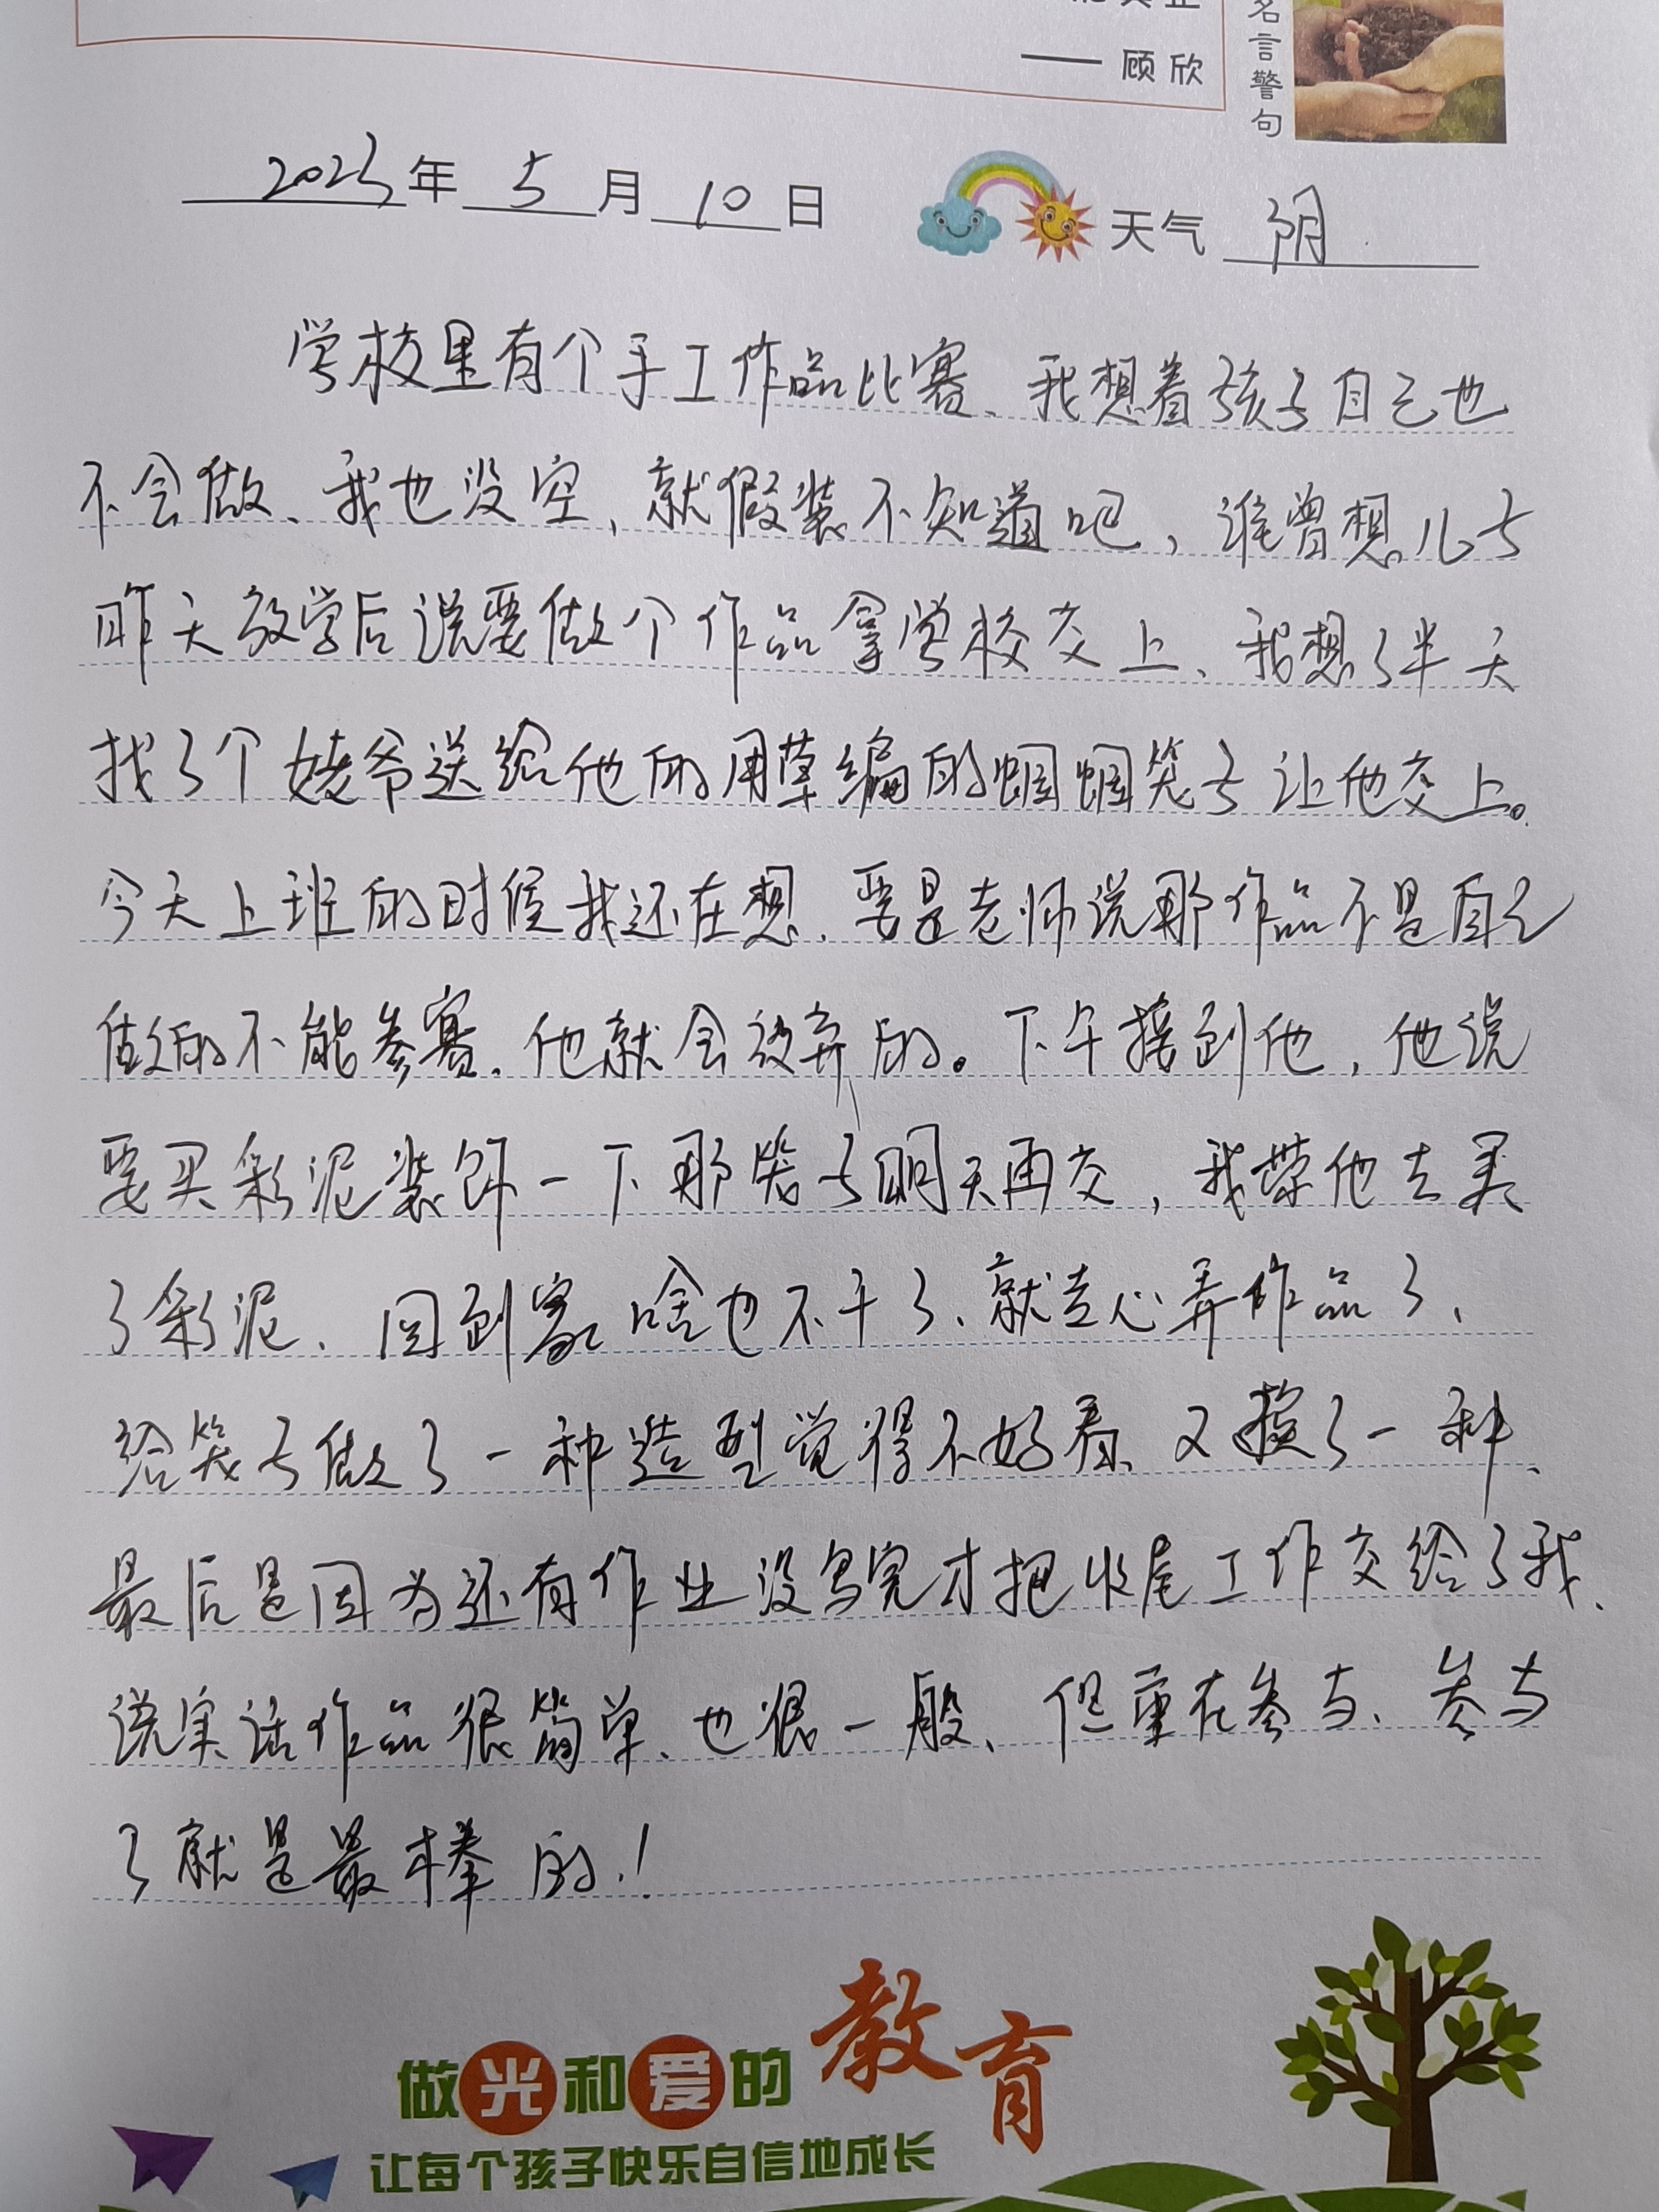 —— 顾欣
名言警句
2023年 5月 10日 天气 阴
学校里有个手工作品比赛、我想着孩子自己也
不会做、我也没空,就假装不知道吧,谁曾想儿子
昨天放学后说要做个作品拿学校交上、我想了半天
找了个姥爷送给他的用草编的蝈蝈笼子让他交上。
今天上班的时候我还在想、要是老师说那作品不是自己
做的不能参赛、他就会放弃的。下午接到他,他说
要买彩泥装饰一下那笼子明天再交,我带他去买
了彩泥、回到家啥也不干了、就走心弄作品了、
给笼子做了一种造型觉得不好看、又换了一种、
最后是因为还有作业没写完才把收尾工作交给了我、
说实话作品很简单、也很一般、但重在参与、参与
了就是最棒的!
做光和爱的教育
让每个孩子快乐自信地成长